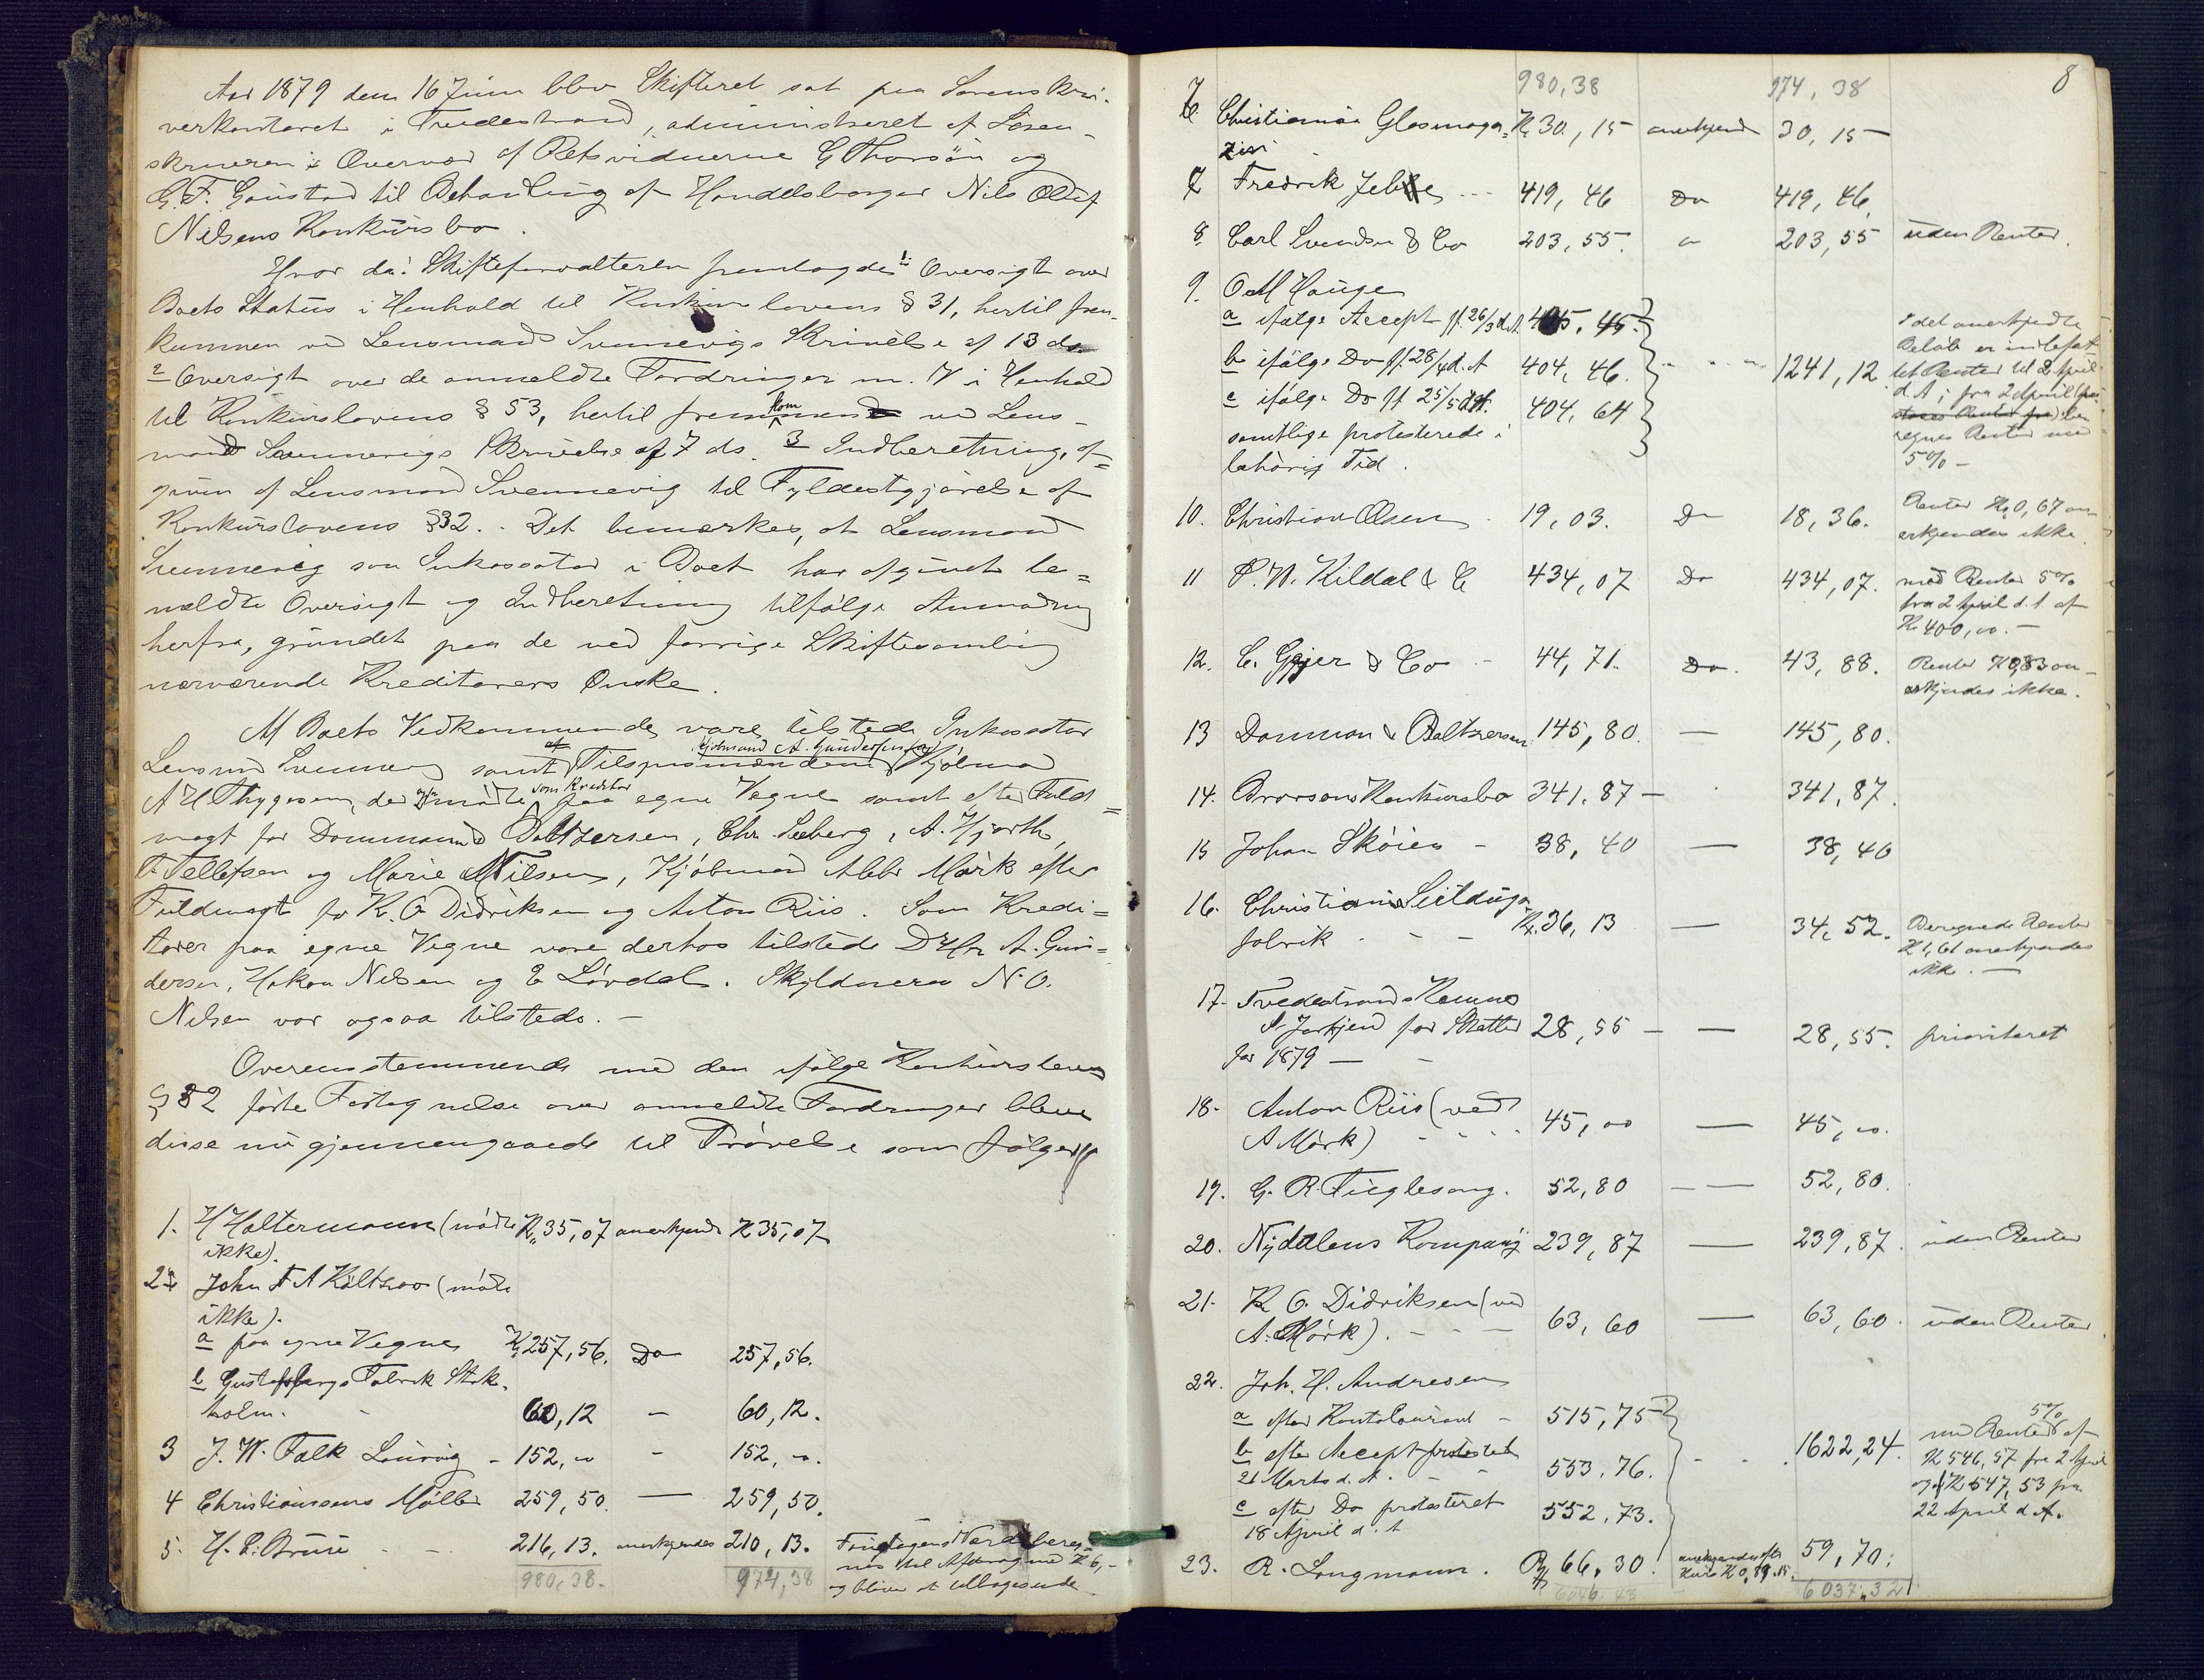 Aar 1879 den 16 Juni blev Skifteret sat paa Sorenskri-
verkontoret i Tvedestrand, administreret af Soren-
skriveren i Overvær af Retsvidnerne G Thorsön og
G. F. Goustad til Behandling af Handelsborger Nils Oluf
Nilsens Konkursbo.
Hvor da: Skifteforvalteren fremlagde 1 Oversigt over
Boets Status i Henhold til Konkurslovens § 31, hertil frem-
kommen ved Lensmand Svennevigs Skrivelse af 13 ds.
2 Oversigt over de anmeldte Fordringer m. V i Henhold
til Konkurslovens § 53, hertil fremkommen ved Lens-
mand Svennevigs Skrivelse af 7 ds. 3 Indberetning, af-
given af Lensmand Svennevig til Fyldestgjørelse af
Konkurslovens § 32. - Det bemærkes, at Lensmand
Svennevig som Inkassator i Boet har afgivet be=
meldte Oversigt og Indberetning tilfølge Anmodning
herfra, grundet paa de ved forrige Skiftesamling
nærværende Kreditorers Ønske.
Af Boets Vedkommende vare tilstede Inkassator
Kjøbmand A. Gundersen
Lensmd Svennevig samt Tilsynsmændene Kjøbmand
som Kreditor
A H Thygesen, der mødte paa egne Vegne samt efter Fuld=
magt for Dommand Baltzersen, Chr. Seeberg, A. Hjorth,
T. Tellefsen og Marie Nilsen, Kjøbmand Abbr Mørk efter
Fuldmagt for K. O Didriksen og Anton Riis. Som Kredi=
torer paa egne Vegne vare derhos tilstede DHr A. Gun=
dersen, Hakon Nilsen og E Lövdal. Skyldneren N. O.
Nilsen var ogsaa tilstede. -
Overensstemmende med den ifølge Konkursloven
§ 52 førte Fortegnelse over anmeldte Fordringer bleve
disse nu gjennemgaaede til Prövelse som følger
1. H Haltermann (mødte Kr 35,07 anerkjendt Kr 35,07
ikke).
2 John F A Költzow (mødte
ikke).
a paa egne Vegne Kr 257,56. Do 257,56.
b Gustafsbergs Fabrik Stok-
holm. - 60,12 - 60,12.
3 J. W. Falk Laurvig - 152,00 - 152,00.
4 Christiansens Mölle 259,50. — 259,50.
5. H. C. Bruu - - 216,13. anerkjendes 210,13. Værdi bereg-
nes til Afdrag med Kr 6,-
og bliver at tilbagesende
980,38. 974,38
8
980,38 974,38
6. Christiania Glasmaga- Kr 30,15 anerkjendt 30,15
zin
7 Fredrik Jebe ... 419,46 Do 419,46,
8. Carl Svendsen & Co 203,55. " 203,55 uden Renter.
9. O M Hauge
a ifølge Accept ff. 26/3 d. A. 405,45.
b ifølge Do ff 28/4 d. A 404,46. - - - 1241,12
c ifølge Do ff 25/5 d. A. 404,64
samtlige protesterede i
behörig Tid.
I det anerkjendte
Beløb er indbefat-
tet Renter til 2 April
d. A; fra 2 April be-
regnes Renter med
5% -
10. Christian Olsen - 19,03. Do 18,36. Renter Kr 0,67 an-
erkjendes ikke.
11 P. W. Kildal & C 434,07 Do 434,07. med Renter 5%
fra 2 April d. A. af
Kr 400,00. -
12. C. Geijer & Co - 44,71. Do. 43,88. Renter Kr 0,83 an-
erkjendes ikke.
13 Domman & Baltzersen 145,80. — 145,80.
14. Brorsons Konkursbo 341.87 - 341,87.
15 Johan Skøien - 38,40 — 38,40
16. Christiania Seildugs-
fabrik - - Kr. 36,13 — 34,52. Beregnede Renter
Kr 1,61 anerkjendes
ikke. —
17. Tvedestrands Kæmner
S. Jerkjend for Skatter 28,55 - — 28,55. prioriteret
for 1879 — -
18. Anton Riis (ved
A Mörk) - - - 45,00 — 45,00.
19. G. R. Fuglesang. 52,80 — 52,80.
20. Nydalens Kompani 239,87 — 239,87. uden Renter
21. K. O. Didriksen (ved
A. Mörk). - - - 63,60 — 63,60. uden Renter.
22. Joh. H. Andresen
a efter Kontokourant - 515,75
b efter Accept protestet
21 Marts d. A. - - 553.76. - - . 1622,24.
c efter Do protesteret
18 April d. A 552,73.
5%
med Renter af
Kr 546,57 fra 2 April
og af Kr 547,53 fra
22 April d. A.
23. R. Langmann. 66,30. anerkjendes efter
Kurs Kr 0,89. 59,70.
6046.43 6037.32